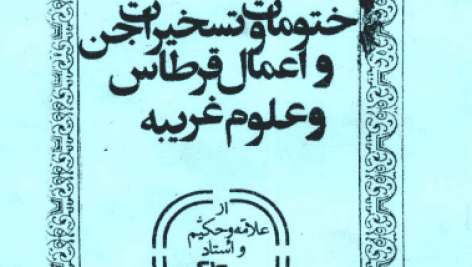 ختومات و تسخیرات جن
و اعمال قرطاس
و علوم غریبه
از
علامه و حکیم
و استاد